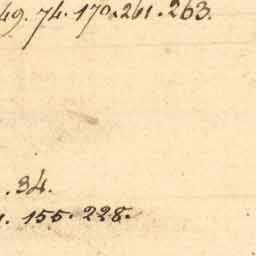 49. 74. 170. 261. 263.
. 34.
. 155. 228.